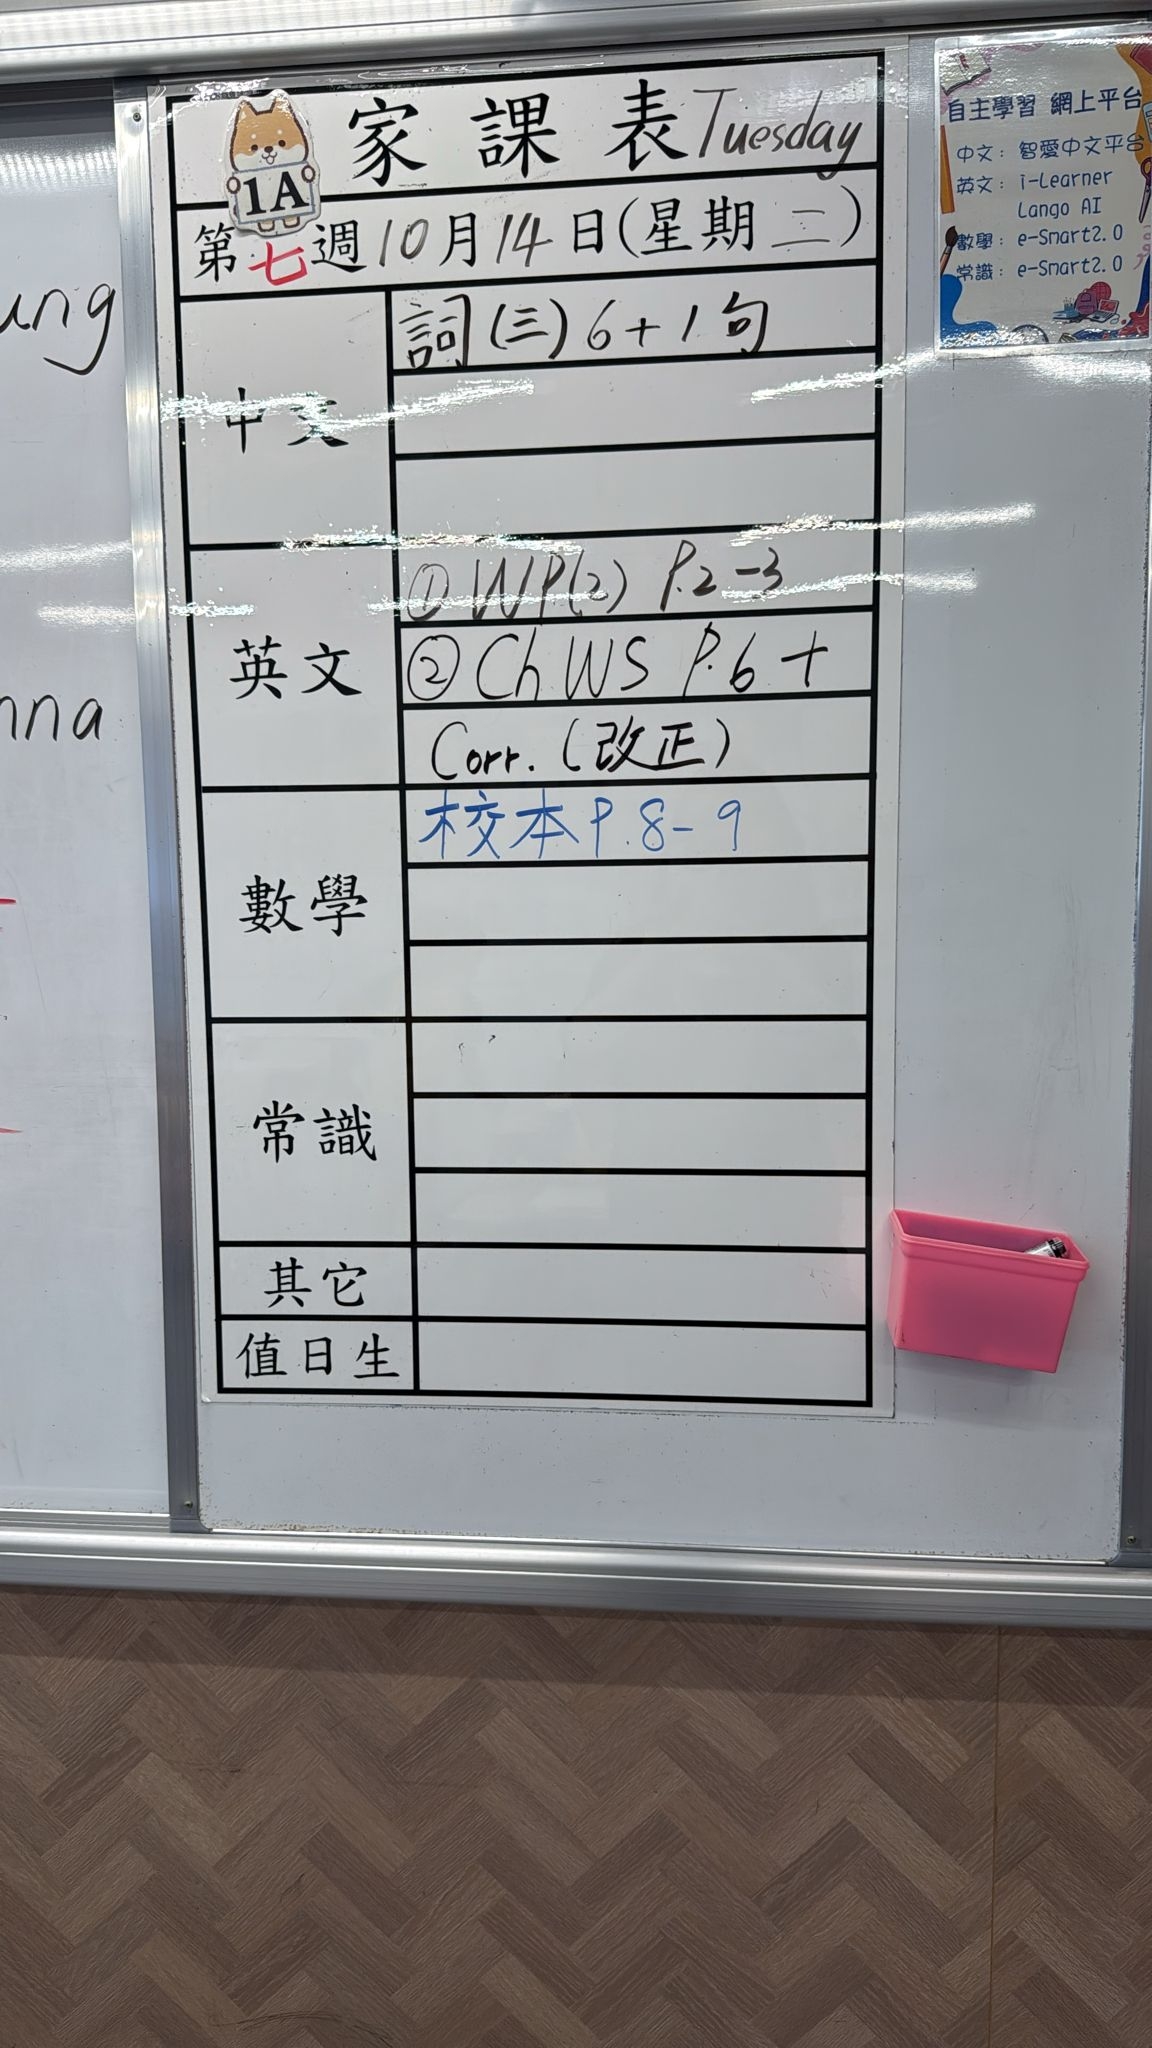 家課表 Tuesday
1A
第七週10月14日(星期二)
中文
詞(三)6+1句
英文
①WP(2) P.2-3
②Ch.WS P.6+
Corr.(改正)
數學
校本P.8-9
常識
其它
值日生
自主學習 網上平台
中文: 智愛中文平台
英文: i-Learner
Lango AI
數學: e-Smart2.0
常識: e-Smart2.0
ung
nna